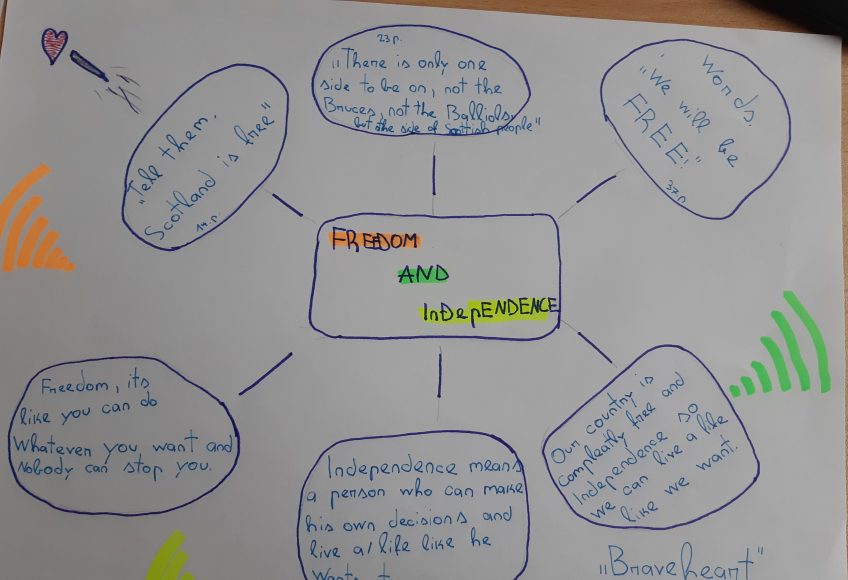 23p.
"There is only one
side to be on, not the
Bruces, not the Balliols,
but the side of Scottish people"
"Tell them,
Scotland is free"
14.p.
Words.
"We will be
FREE!"
37.p
FREEDOM
AND
InDepENDENCE
Freedom, its
like you can do
Whatever you want and
Nobody can stop you.
Independence means
a person who can make
his own decisions and
live a life like he
Our country is
compleatly free and
Independence so
we can live a life
like we want.
"Braveheart"